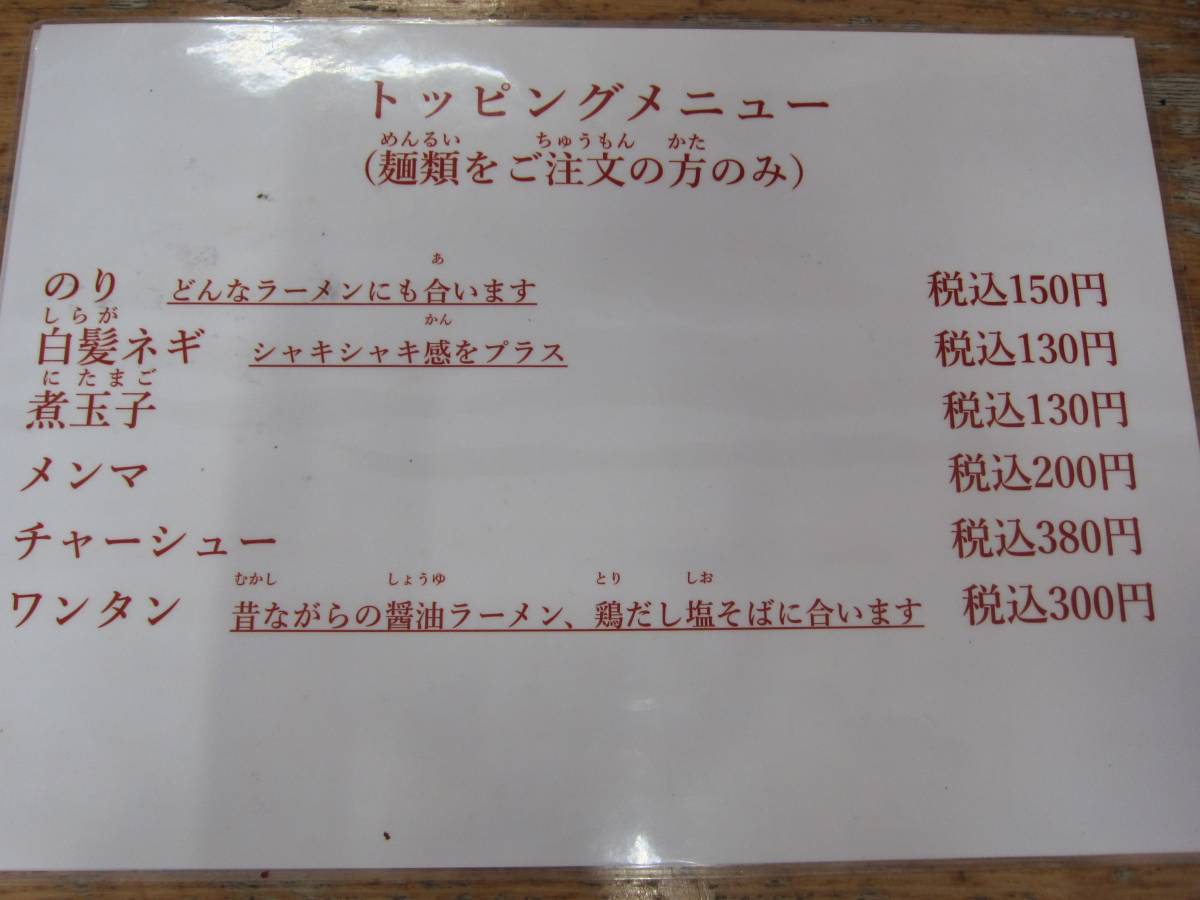 トッピングメニュー
めんるい ちゅうもん かた
(麺類をご注文の方のみ)
あ
のり どんなラーメンにも合います 税込150円
しらが かん
白髪ネギ シャキシャキ感をプラス 税込130円
にたまご
煮玉子 税込130円
メンマ 税込200円
チャーシュー 税込380円
むかし しょうゆ とり しお
ワンタン 昔ながらの醤油ラーメン、鶏だし塩そばに合います 税込300円